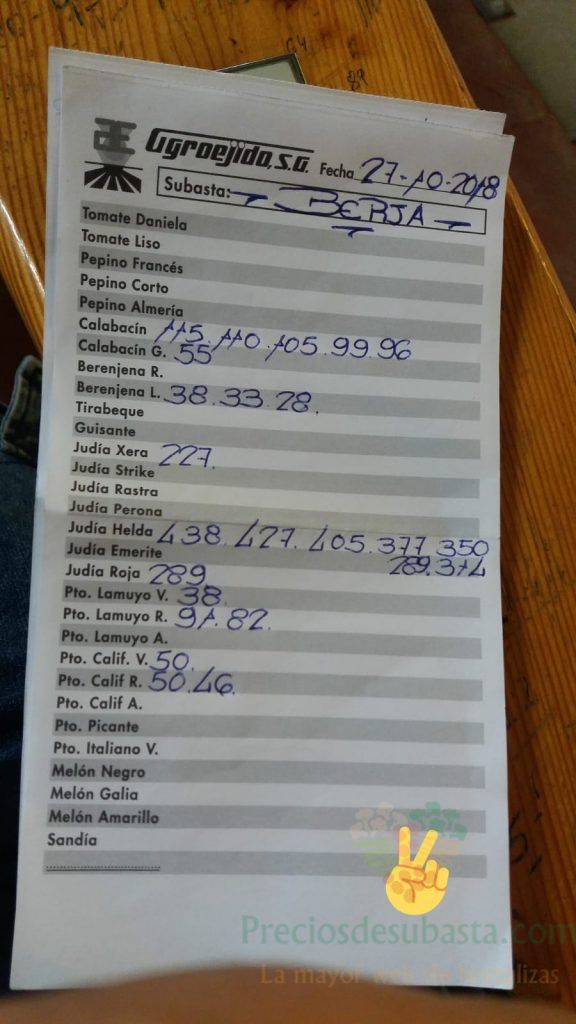 Agroejido, S.A. Fecha 27-10-2018
Subasta: - BERJA -
Tomate Daniela
Tomate Liso
Pepino Francés
Pepino Corto
Pepino Almería
Calabacín 115. 110. 105. 99. 96
Calabacín G. 55
Berenjena R.
Berenjena L. 38. 33. 28.
Tirabeque
Guisante
Judía Xera 227.
Judía Strike
Judía Rastra
Judía Perona
Judía Helda 438. 427. 405. 377. 350
Judía Emerite 289. 374
Judía Roja 289
Pto. Lamuyo V. 38.
Pto. Lamuyo R. 91. 82.
Pto. Lamuyo A.
Pto. Calif. V. 50.
Pto. Calif R. 50. 46.
Pto. Calif A.
Pto. Picante
Pto. Italiano V.
Melón Negro
Melón Galia
Melón Amarillo
Sandía
Preciosdesubasta.com
La mayor web de hortalizas